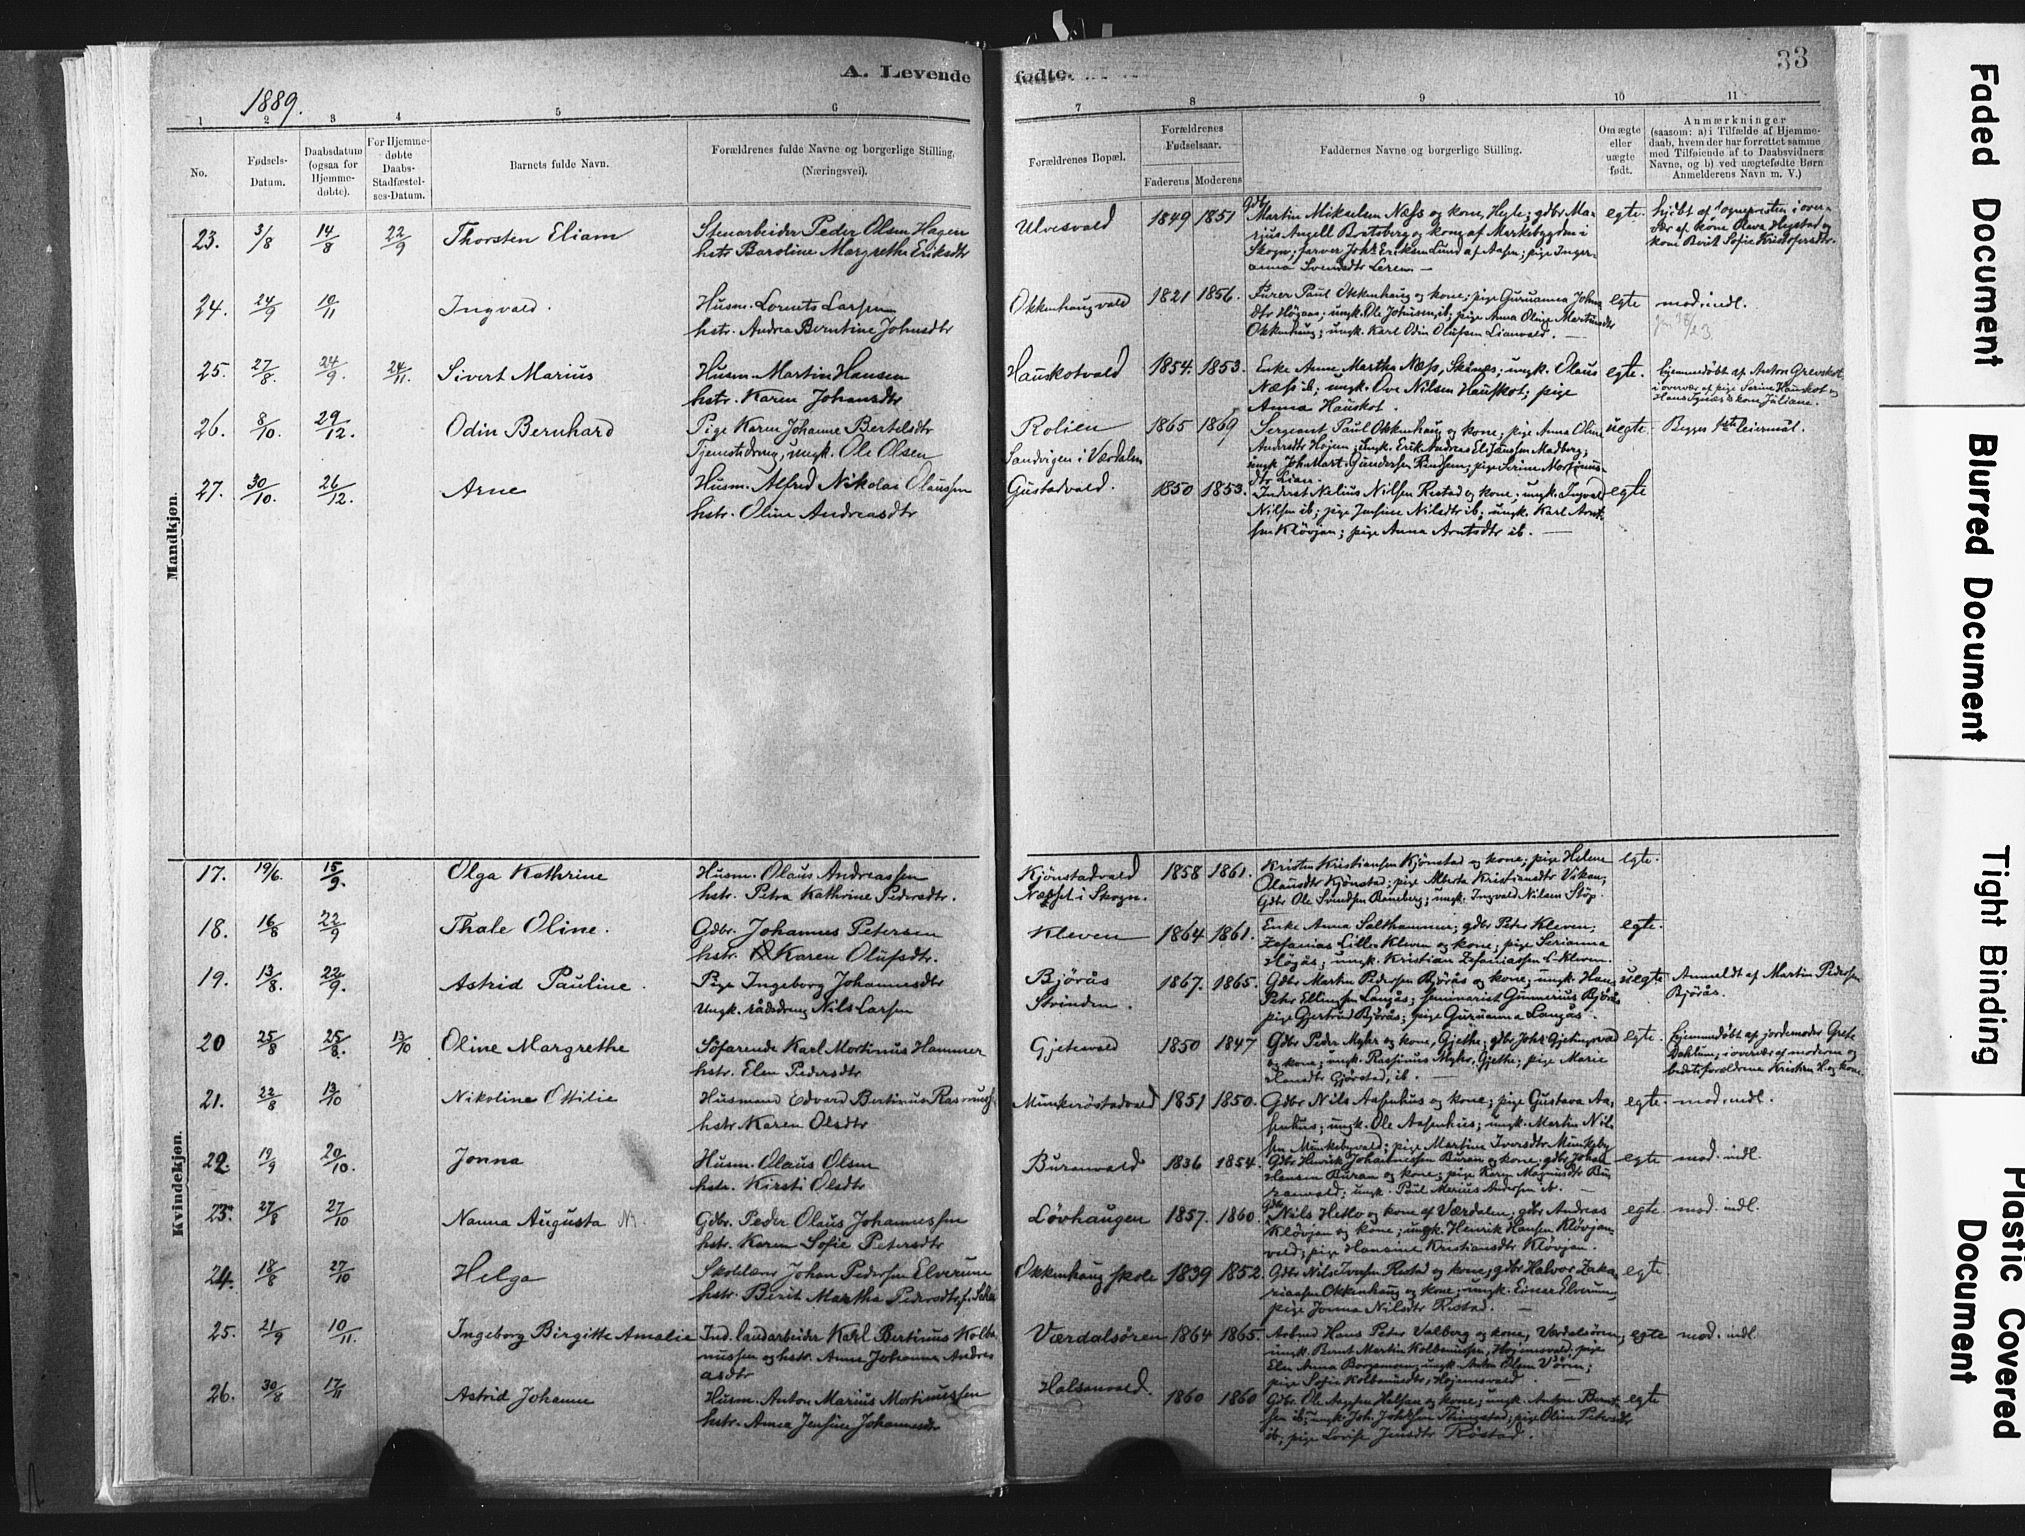 A. Levende
fødte.
33
1889.
1 2 3 4 5 6 7 8 9 10 11
No.
Fødsels-
Datum.
Daabsdatum
(ogsaa for
Hjemme-
døbte).
For Hjemme-
døbte
Daabs-
Stadfæstel-
ses-Datum.
Barnets fulde Navn.
Forældrenes fulde Navne og borgerlige Stilling,
(Næringsvei).
Forældrenes Bopæl.
Forældrenes
Fødselsaar.
Faderens Moderens
Faddernes Navne og borgerlige Stilling.
Om ægte
eller
uægte
født.
Anmærkninger
(saasom: a) i Tilfælde af Hjemme-
daab, hvem der har forrettet samme
med Tilføiende af to Daabsvidners
Navne, og b) ved uægtefødte Børn
Anmelderens Navn m. V.)
Mandkjøn.
23. 3/8 14/8 22/9 Thorsten Eliam
Stenarbeider Peder Olsen Hagen
hstr Baroline Margrethe Eriksdtr
Ulvesvald 1849 1851
Martin Mikaelsen Næss og kone, Hegle; gdbr Ma-
rius Angell Brataberg og kone af Markabygden i
Skogn; farver Johs Eriksen Lund af Aasen; pige Inger-
anna Svendsdtr Leren. —
egte.
24. 24/9 10/11 Ingvald.
Husm. Lorents Larsen
hstr. Andrea Berntine Johnsdtr
Okkenhaugvald 1821 1856.
Furer Paul Okkenhaug og kone; pige Guruanna Johns
dtr Høgaas; ungk. Ole Johnsen, ib; pige Anna Oline Martinsdtr
Okkenhaug; ungk. Karl Odin Olufsen Lianvald. —
egte mod. indl.
25. 27/8. 24/9. 24/11. Sivert Marius
Husm. Martin Hansen
hstr. Karen Johansdtr
Hauskotvald 1854. 1853.
Enke Anne Martha Næss, Skånes; ungk. Olaus
Næss ib; ungk. Ove Nilsen Hausskot; pige
Anna Hauskot.
egte.
hjemmedøbt af Anton Grevskot
i overvær af pige Serine Hauskot og
26. 8/10. 29/12. Odin Bernhard
Pige Karen Johanne Bertelsdtr
Tjenestedreng, ungk. Ole Olsen
Rolien 1865 1869
Sandvigen i Værdalen
Sergeant Paul Okkenhaug og kone; pige Anna Oline
Andersdtr Højem; ungk. Erik Andreas Elisæussen Madberg;
ungk Joh. Mart. Gunderssen Rindsem; pige Serine Mortinus-
dtr Lian.
uegte Begges 1ste leiermål.
27. 30/10. 26/12. Arne
Husm. Alfred Nikolai Olaussen
hstr. Oline Andreasdtr
Gustadvald. 1850 1853.
Inderst Nelius Nilssen Restad og kone; ungk. Ingvald
Nilsen ib; pige Jensine Nilsdtr ib; ungk. Karl Arnt-
sen Kløvjan; pige Anna Arntsdtr ib. —
egte
Kvindekjøn.
17. 19/6. 15/9. Olga Kathrine
Husm. Olaus Andreassen
hstr. Petra Kathrine Pedersdtr.
Kjønstadvald 1858 1861.
Næsset i Skogn.
Kristen Kristiansen Kjønstad og kone; pige Helene
Olausdtr Kjønstad; pige Alberta Kristiansdtr Vikan;
Gdbr Ole Svendsen Raneberg; ungk. Ingvald Nilsen Støp
egte.
18. 16/8 22/9 Thale Oline.
Gdbr. Johannes Petersen
hstr. Karen Olufsdtr.
Kleven 1864 1861.
Enke Anna Salthammer; gdbr Peter Kleven;
Zefanias Lille-Kleven og kone; pige Serianna
Høgås; ungk. Kristian Zefaniassen L-Kleven.
egte.
19. 13/8. 22/9. Astrid Pauline.
Pige Ingeborg Johannesdtr
Ungk. rådsdreng Nils Larsen
Bjørås 1867. 1865.
Strinden.
Gdbr. Martin Pedersen Bjørås og kone; ungk. Hans
Peter Ellingsen Langås; seminarist Gunnerius Bjørås
pige Gjertrud Bjørås; pige Guruanna Langås.
uegte
Anmeldt af Martin Pedersen
Bjørås.
20 25/8 25/8. 13/10 Oline Margrethe
Søfarende Karl Mortinus Hammer
hstr. Elen Pedersdtr
Gjetesvald 1850 1847
Gdbr Peder Myhr og kone, Gjethe; gdbr Johs Gjetingsvad
og kone; ungk. Rasinus Myhr, Gjethe; pige Marie
Hansdtr Gjørstad, ib. —
egte.
hjemmedøbt af jordemoder Grete
Dahlum; i overvær af moderen og
bedsteforældrene Kristen H. og kone
21. 22/8 13/10 Nikoline Ottilie
Husmand Edvard Bertinus Rasmuss.
hstr Karen Olsdtr
Munkerøstadvald 1851 1850.
Gdbr Nils Aasenhus og kone; pige Gustava Aa-
senhus; ungk. Ole Aasenhus; ungk. Martin Nil-
sen Munkebyvald; pige Martina Iversdtr Munkeby
egte. mod. indl.
22. 19/9 20/10. Jonna
Husm. Olaus Olsen
hstr. Kirsti Olsdtr
Buranvald 1836 1854.
Gdbr Henrik Johannessen Buran og kone, gdbr Johan
Hansen Buran og kone; pige Karen Magnusdtr Bu
ranvald; ungk. Paul Marius Andersen ib. —
egte mod. indl
23. 27/8 27/10 Nanna Augusta N.
Gdbr. Peder Olaus Johannessen
hstr. Karen Sofie Petersdtr
Løvhaugen 1857. 1860.
Nils Hetlo og kone af Værdalen; gdbr Andreas
Kløvjan og kone; ungk Henrik Hansen Kløvjan-
vald; pige Hansine Kristiansdtr Kløvjan.
egte mod. indl.
24. 18/8 27/10 Helga
Skolelærer Johan Pedersen Elverum
hstr. Berit Martha Pedersdtr,
Okkenhaug skole 1839 1852.
Gdbr Nils Iversen Restad og kone; gdbr Halvor Zaka-
riassen Okkenhaug og kone; ungk. Einar Elverum;
pige Jonna Nilsdtr Restad. —
egte
25. 21/9 10/11. Ingeborg Birgitte Amalie
Ind. landarbeider Karl Bertinus Kolba
nussen og hstr. Anne Johanna Andre
asdtr
Værdalsøren 1864 1865.
Arbmd Hans Peter Valberg og kone, Værdalsøren;
ungk. Bernt Martin Kolbanussen, Højemsvald; pige
Elen Anna Borgemoen; ungk. Anton Olsen Vårin;
pige Sofie Kolbanusdtr, Højemsvald. —
egte mod. indl
26. 30/8 17/11 Astrid Johanne
Husm. Anton Marius Mortinussen
hstr. Anna Jensine Johannesdtr
Halsanvald. 1860 1860
Gdbr. Ole Aagesen Halsan og kone; ungk. Anton Bernt-
sen ib; ungk. Joh. Johssen Tingstad; pige Oline Petersdtr
ib; pige Lovise Jensdtr Røstad.
egte
Faded Document
Blurred Document
Tight Binding
Plastic Covered
Document